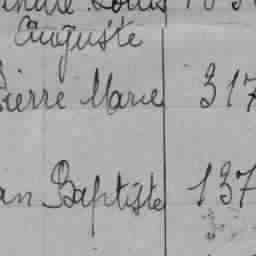 Louis
Auguste
Pierre Marie 317
an Baptiste 137